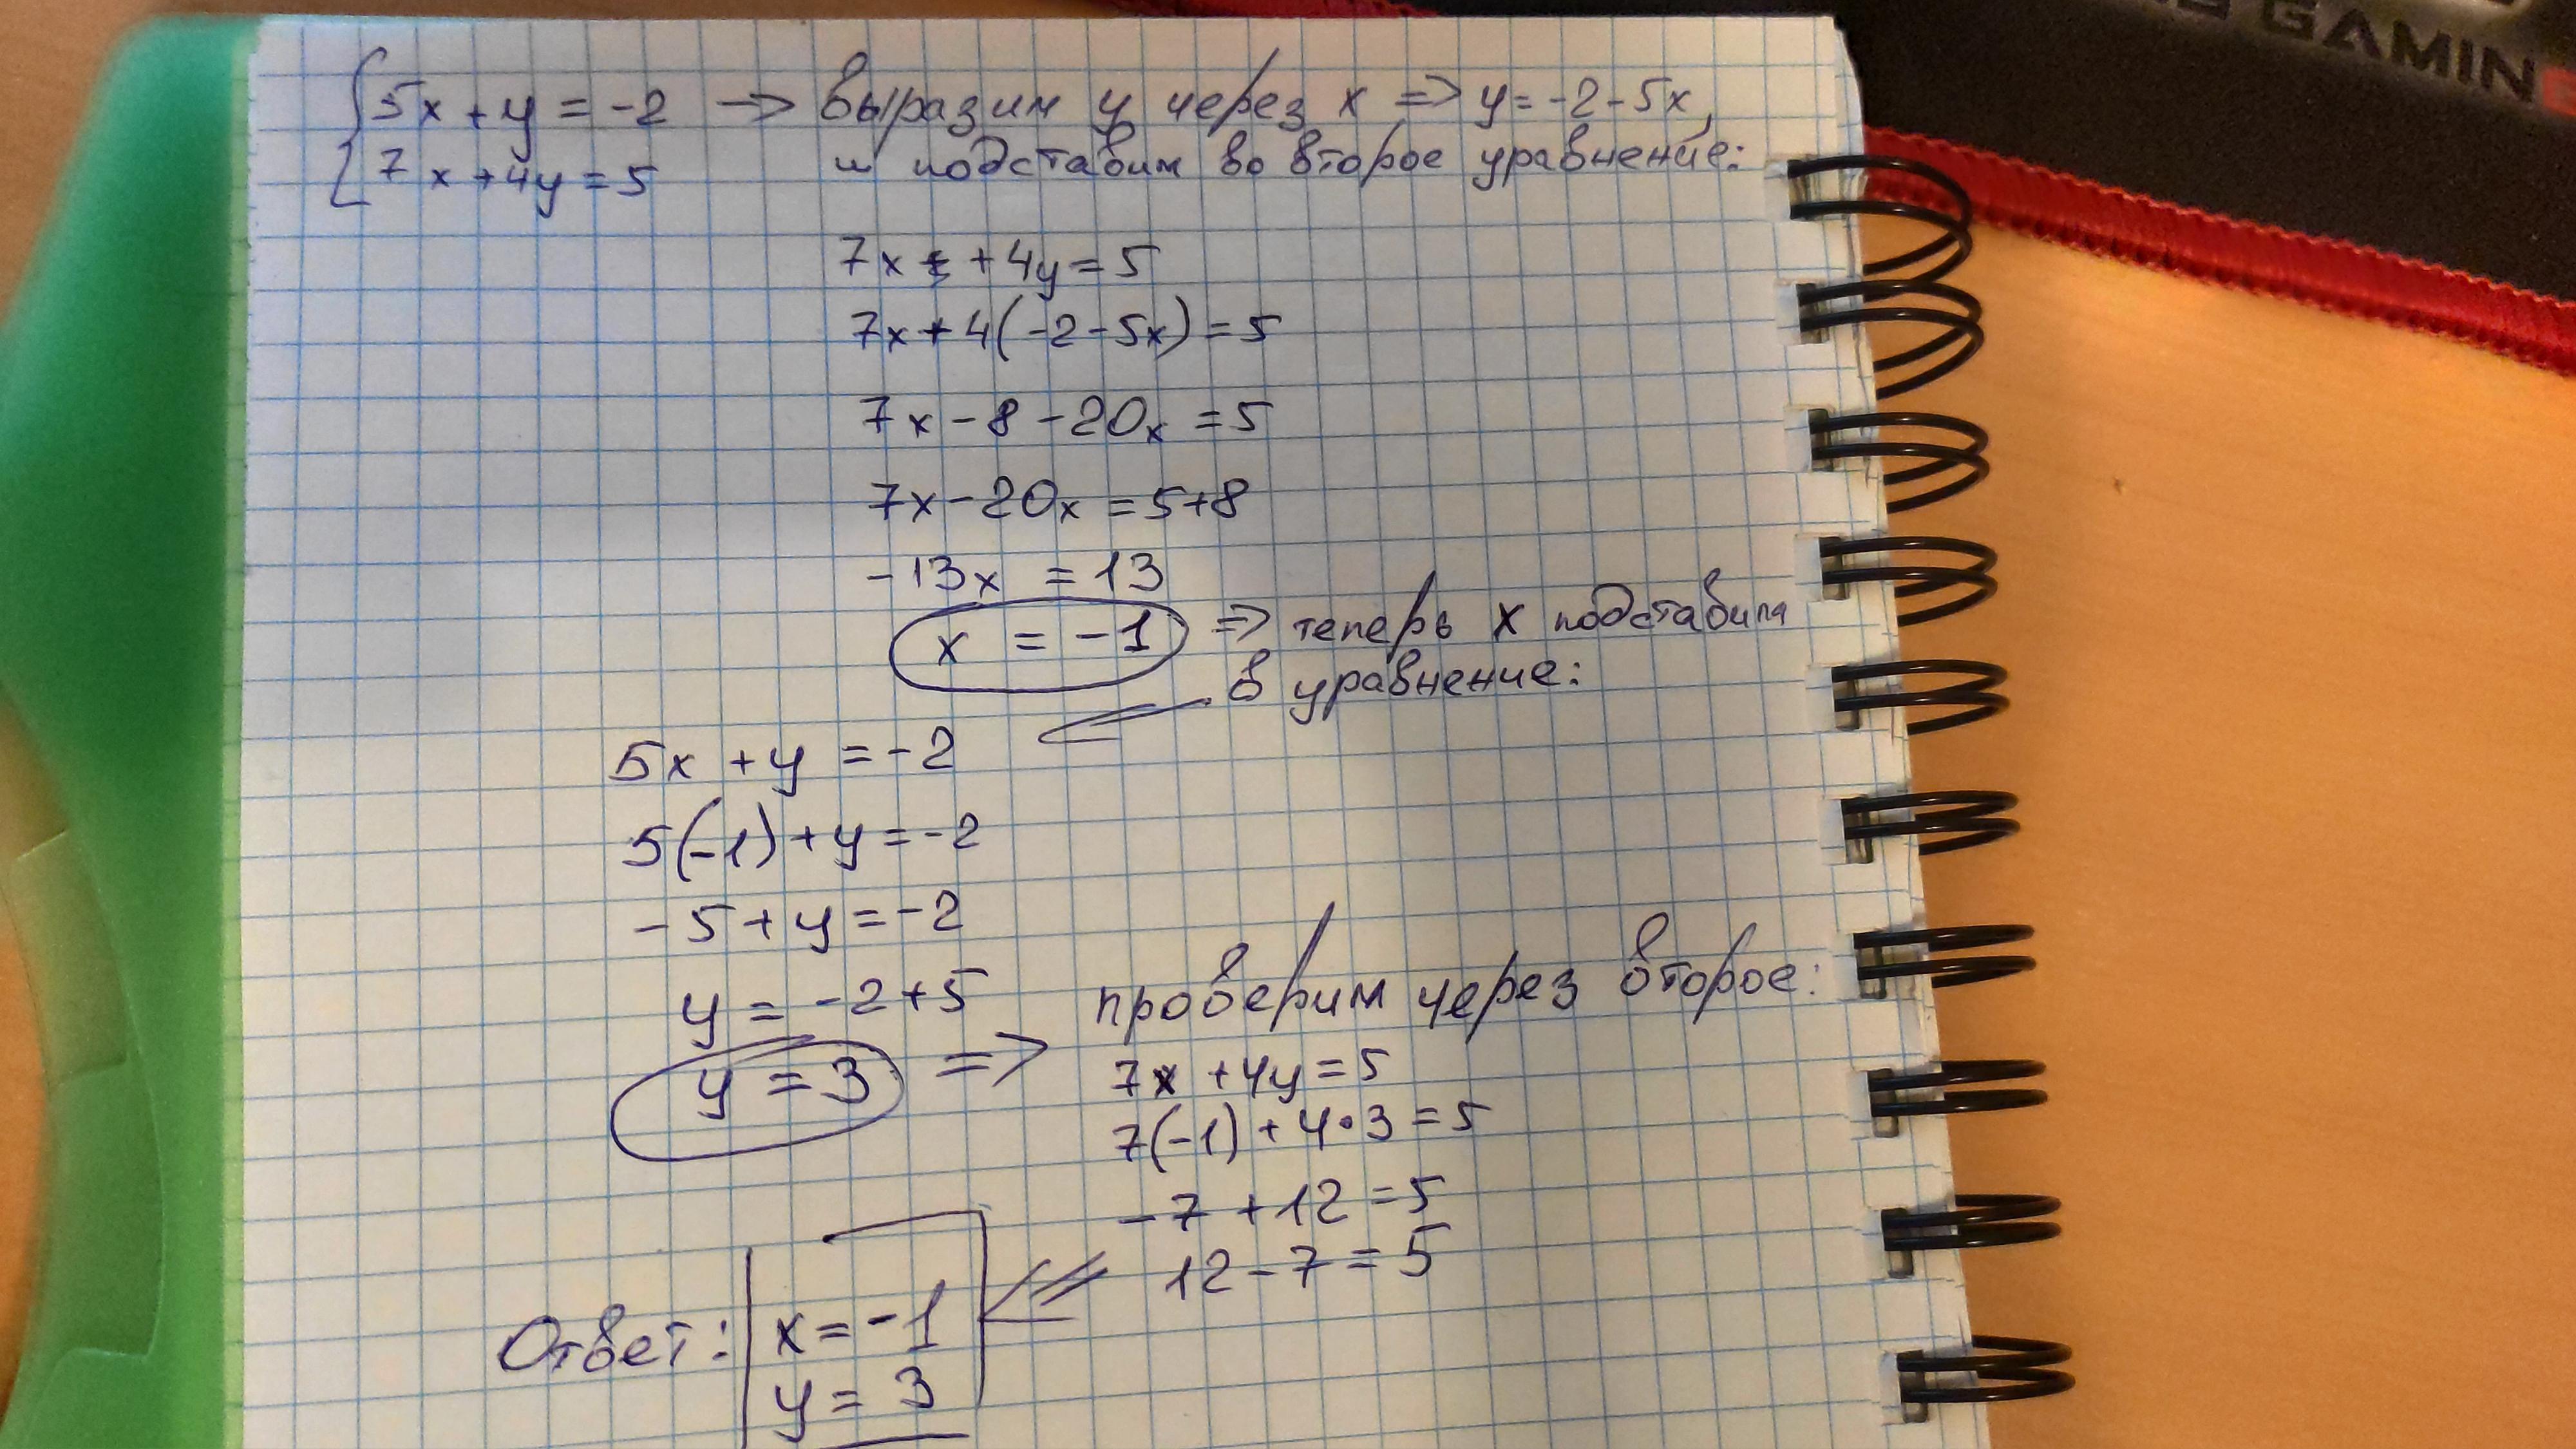 {5x+y=-2 -> выразим y через x => y=-2-5x,
{7x+4y=5 и подставим во второе уравнение:
7x + 4y=5
7x+4(-2-5x)=5
7x-8-20x=5
7x-20x=5+8
-13x=13
x=-1 => теперь x подставим
в уравнение:
5x+y=-2
5(-1)+y=-2
-5+y=-2
y=-2+5
y=3 => проверим через второе:
7x+4y=5
7(-1)+4•3=5
-7+12=5
12-7=5
Ответ: x=-1
y=3
GAMING